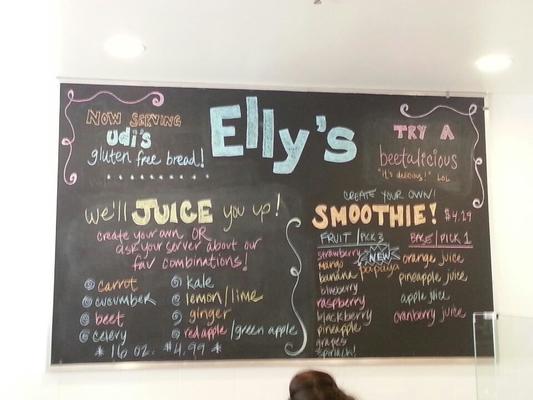 NOW SERVING
udi's
gluten free bread!
Elly's
TRY A
beetalicious
"it's delicious!" LOL
we'll JUICE you up!
create your own OR
ask your server about our
fav combinations!
carrot
cucumber
beet
celery
kale
lemon/lime
ginger
red apple/green apple
* 16 oz. $4.99 *
CREATE YOUR OWN!
SMOOTHIE! $4.29
FRUIT/PICK 3
strawberry
mango
banana
blueberry
raspberry
blackberry
pineapple
grapes
spinach!
NEW
papaya
BASE/PICK 1
orange juice
pineapple juice
apple juice
cranberry juice